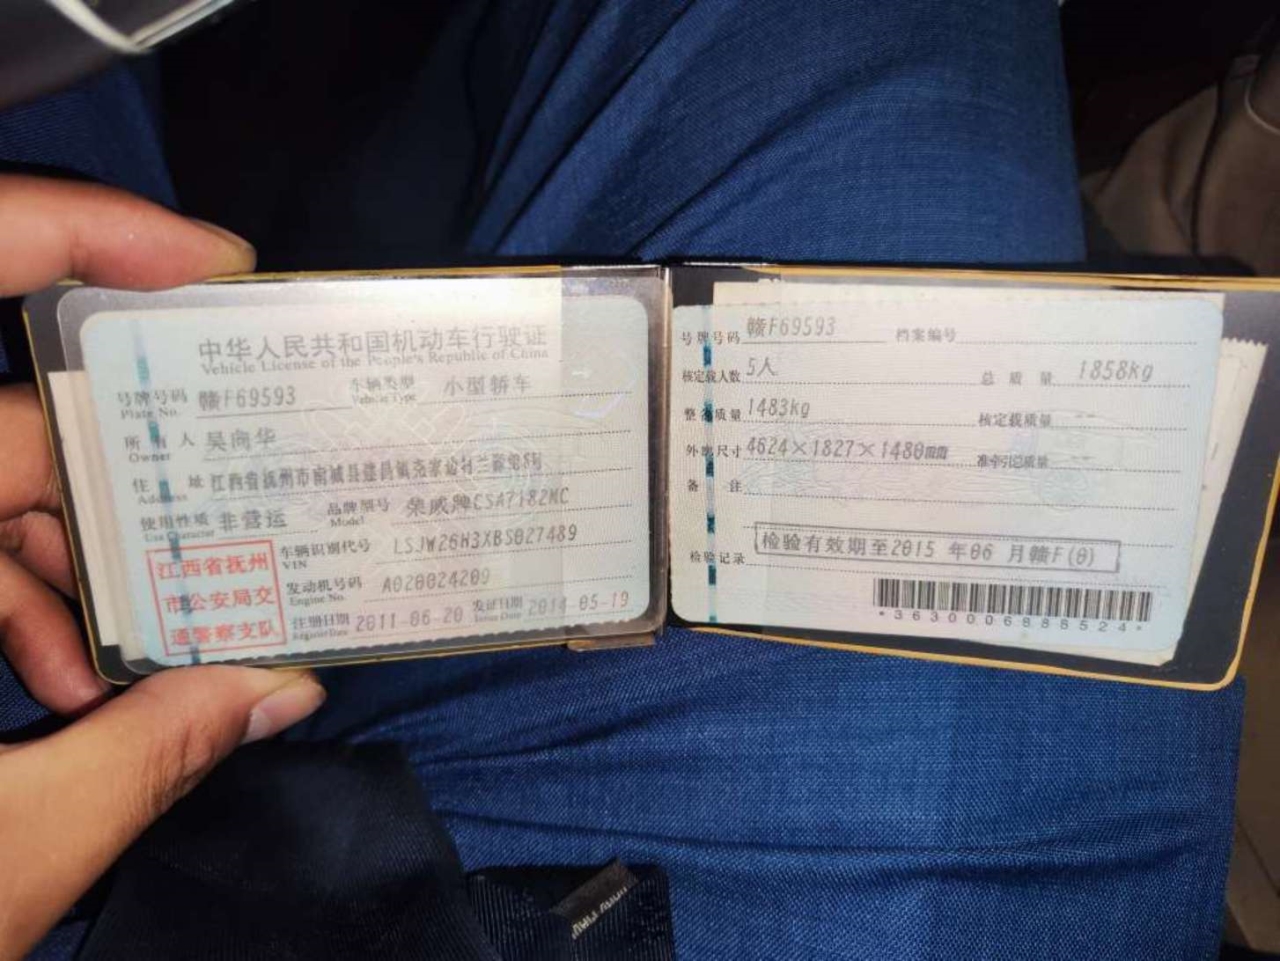 中华人民共和国机动车行驶证
Vehicle License of the People's Republic of China
号牌号码 赣F69593 车辆类型 小型轿车
Plate No. Vehicle Type
所有人 吴尚华
Owner
住址 江西省抚州市南城县建昌镇
Address
使用性质 非营运 品牌型号 荣威牌CSA7182MC
Use Character Model
江西省抚州
市公安局交
通警察支队
车辆识别代号 LSJW26H3XBS027489
VIN
发动机号码 A020024209
Engine No.
注册日期 2011-06-20 发证日期 2014-05-19
Register Date Issue Date
号牌号码 赣F69593 档案编号
核定载人数 5人 总质量 1858kg
整备质量 1483kg 核定载质量 --
外廓尺寸 4624×1827×1480mm 准牵引总质量 --
备注
检验记录 检验有效期至2015年06月赣F(0)
*3630006888524*